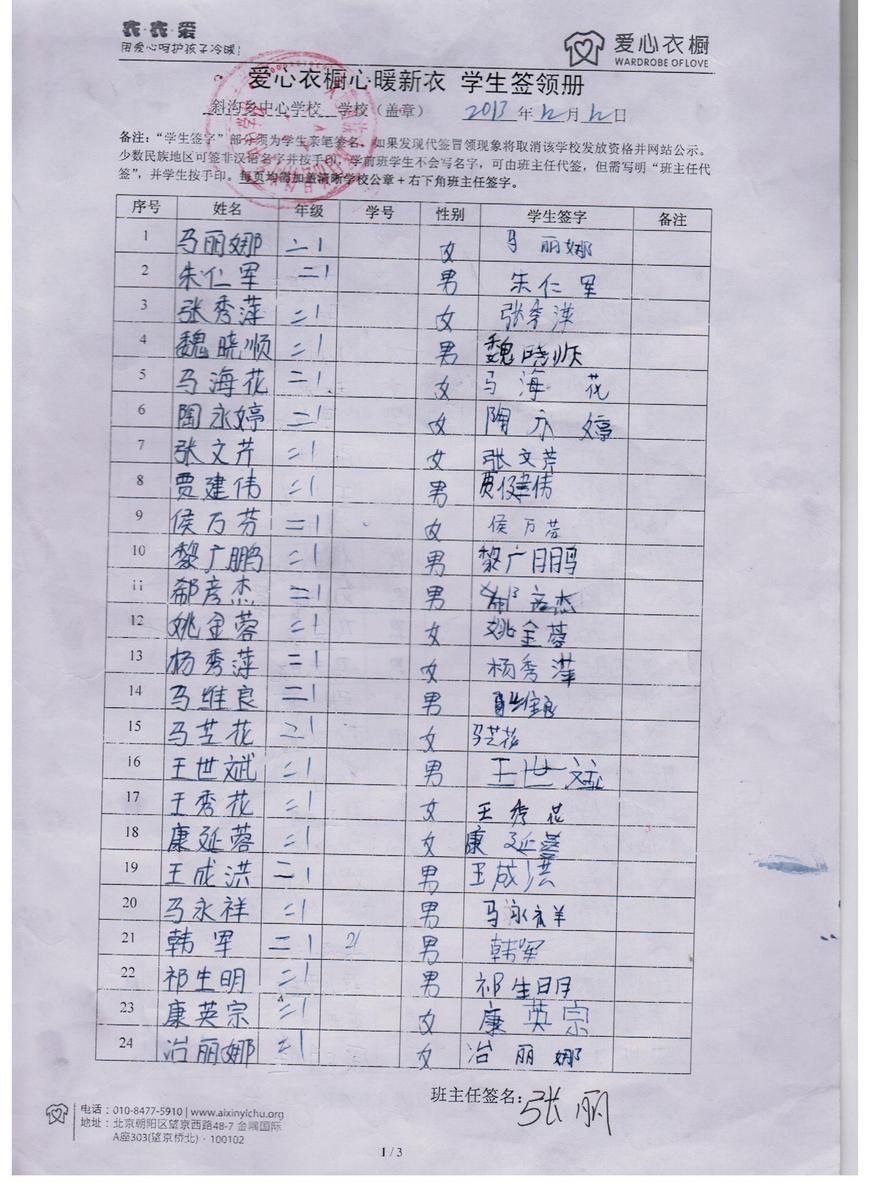 衣·衣·爱
用爱心呵护孩子冷暖!
爱心衣橱
WARDROBE OF LOVE
爱心衣橱心暖新衣 学生签领册
斜沟乡中心学校 学校（盖章） 2013 年 12 月 12 日
备注：“学生签字”部分须为学生亲笔签名，如果发现代签冒领现象将取消该学校发放资格并网站公示。
少数民族地区可签非汉语名字并按手印，学前班学生不会写名字，可由班主任代签，但需写明“班主任代
签”，并学生按手印。每页均需加盖清晰学校公章+右下角班主任签字。
序号 姓名 年级 学号 性别 学生签字 备注
1 马丽娜 二1 女 马丽娜
2 朱仁军 二1 男 朱仁军
3 张秀萍 二1 女 张秀萍
4 魏晓顺 二1 男 魏晓顺
5 马海花 二1 女 马海花
6 陶永婷 二1 女 陶永婷
7 张文芹 二1 女 张文芹
8 贾建伟 二1 男 贾建伟
9 侯万芳 二1 女 侯万芳
10 黎广鹏 二1 男 黎广鹏
11 郗彦杰 二1 男 郗彦杰
12 姚金蓉 二1 女 姚金蓉
13 杨秀萍 二1 女 杨秀萍
14 马维良 二1 男 马维良
15 马芝花 二1 女 马芝花
16 王世斌 二1 男 王世斌
17 王秀花 二1 女 王秀花
18 康延蓉 二1 女 康延蓉
19 王成洪 二1 男 王成洪
20 马永祥 二1 男 马永祥
21 韩军 二1 21 男 韩军
22 祁生明 二1 男 祁生明
23 康英宗 二1 女 康英宗
24 冶丽娜 二1 女 冶丽娜
班主任签名：张丽
电话：010-8477-5910 | www.aixinyichu.org
地址：北京朝阳区望京西路48-7 金隅国际
A座303(望京桥北)·100102
1 / 3